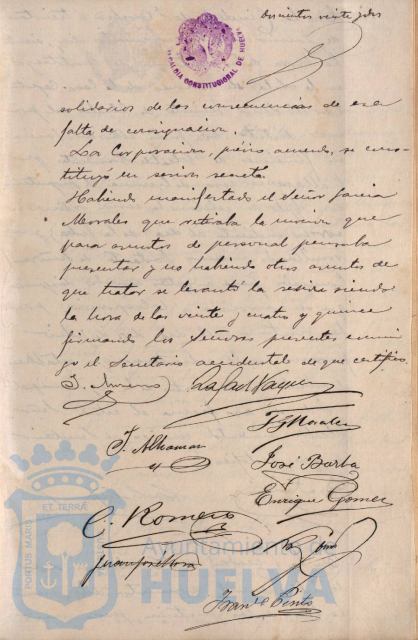 doscientos veinte y dos
ALCALDIA CONSTITUCIONAL DE HUELVA
solidarios de las consecuencias de esa
falta de consignación.
La Corporación, previo acuerdo, se cons-
tituyó en sesión secreta.
Habiendo manifestado el Señor García
Morales que retiraba la moción que
para asuntos de personal pensaba
presentar y no habiendo otros asuntos de
que tratar se levantó la sesión siendo
la hora de las veinte y cuatro y quince
firmando los Señores presentes conmi-
go el Secretario accidental de que certifico
J. Moreno
Rafael Vazquez
J. Alhaman
Morales
José Barba
Enrique Gomez
C. Romero
Juan José Mora
Franco Pinto
PORTUS MARIS
ET TERRÆ
Ayuntamiento
HUELVA